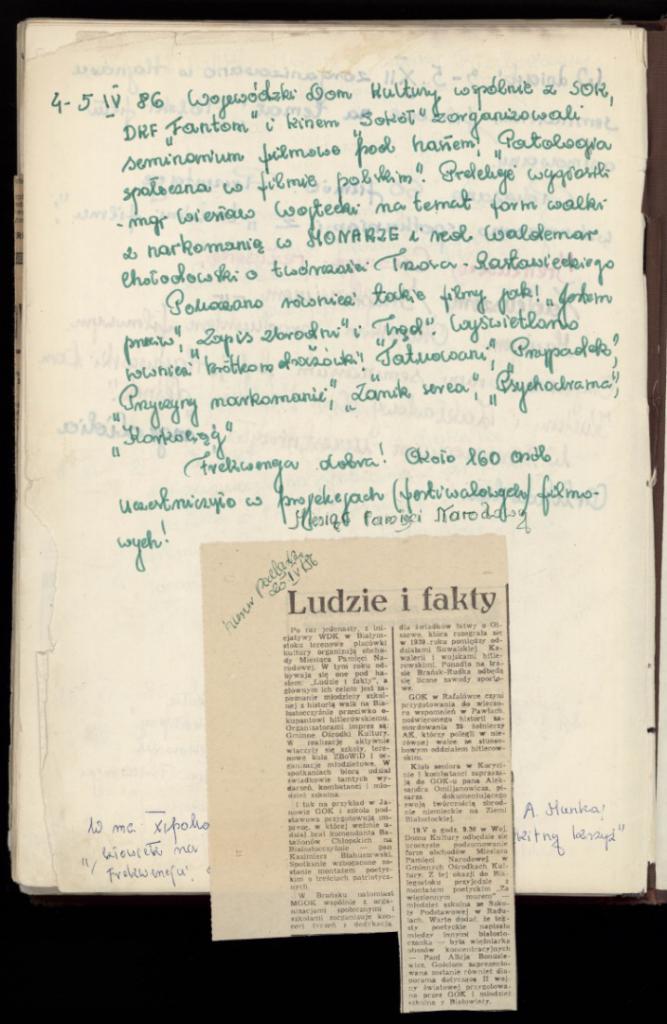 4-5 IV 86 Wojewódzki Dom Kultury wspólnie z SOK,
DKF "Fantom" i kinem "Sokół" zorganizowali
seminarium filmowe pod hasłem! "Patologia
społeczna w filmie polskim". Prelekcje wygłosili
- mgr Wiesław Wojtecki na temat form walki
z narkomanią w MONARZE i red. Waldemar
Chołodowski o twórczości Trzosa-Rastawieckiego
Pokazano również takie filmy jak! "Jestem
przeciw", "Zapis zbrodni" i "Trąd". Wyświetlano
również krótkometrażówki! "Tatuowani", "Przypadek",
"Przyczyny narkomanii", "Zanik serca", "Psychodrama",
"Korkociąg"
Frekwencja dobra! Około 160 osób
uczestniczyło w projekcjach (festiwalowych) filmo-
wych!
Miesiąc Pamięci Narodowej
Kurier Podlaski
IV 86
Ludzie i fakty
Po raz jedenasty, z ini-
cjatywy WDK w Białym-
stoku terenowe placówki
kultury organizują obcho-
dy Miesiąca Pamięci Na-
rodowej. W tym roku od-
bywają się one pod ha-
słem: „Ludzie i fakty", a
głównym ich celem jest za-
poznanie młodzieży szkol-
nej z historią walk na Bia-
łostocczyźnie przeciwko o-
kupantowi hitlerowskiemu.
Organizatorami imprez są:
Gminne Ośrodki Kultury.
W realizację aktywnie
włączyły się szkoły, tere-
nowe koła ZBoWiD i or-
ganizacje młodzieżowe. W
spotkaniach biorą udział
świadkowie tamtych wy-
darzeń, kombatanci i mło-
dzież szkolna.
I tak na przykład w Ja-
nowie GOK i szkoła pod-
stawowa przygotowują im-
prezę, w której weźmie u-
dział brat komendanta Ba-
talionów Chłopskich na
Białostocczyźnie — pan
Kazimierz
Spotkanie wzbogacone zo-
stanie montażem poetyc-
kim o treściach patriotycz-
nych.
W Brańsku natomiast
MGOK wspólnie z orga-
nizacjami społecznymi i
szkołami zorganizuje kon-
cert życzeń z dedykacją
dla świadków bitwy o Ol-
szewo, która rozegrała się
w 1939 roku pomiędzy od-
działami Suwalskiej Ka-
walerii i wojskami hitle-
rowskimi. Ponadto na tra-
sie Brańsk-Rudka odbędą
się liczne zawody sporto-
we.
GOK w Rafałówce czyni
przygotowania do wieczo-
ru wspomnień w Pawłach,
poświęconego historii za-
mordowania 26 żołnierzy
AK, którzy polegli w nie-
równej walce ze stuoso-
bowym oddziałem hitlerow-
skim.
Klub seniora w Koryci-
nie i kombatanci zaprasza-
ją do GOK-u pana Alek-
sandra Omiljanowicza, pi-
sarza dokumentującego
swoją twórczością zbrod-
nie niemieckie na Ziemi
Białostockiej.
19.V o godz. 9.30 w Woj.
Domu Kultury odbędzie się
uroczyste podsumowanie
form obchodów Miesiąca
Pamięci Narodowej w
Gminnych Ośrodkach Kul-
tury. Z tej okazji do Bia-
łegostoku przyjedzie z
montażem poetyckim „Za
więziennym murem" —
młodzież szkolna ze Szko-
ły Podstawowej w Radu-
lach. Warto dodać, że tek-
sty poetyckie napisała
między innymi białosto-
czanka — była więźniarka
obozów koncentracyjnych
— Pani Alicja
Gościom zaprezento-
wana zostanie również dia-
porama dotycząca II woj-
ny światowej przygotowa-
na przez GOK i młodzież
szkolną z Białowieży.
W ma
na
Frekwencja!
A. Munka!